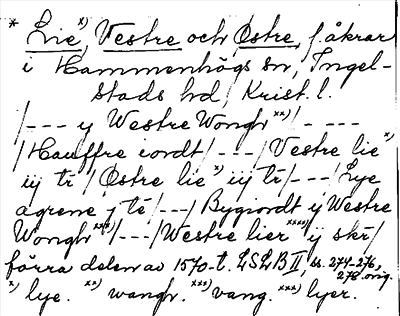 * Lie x), Vestre och Östre, f. åkrar
i Hammenhögs sn, Ingel-
stads hd, Krist. l.
/--- y Westre Wongh xx)/ ----
/Hauffre iordt/---/Vestre lie x)
iij tr/ Östre lie x) iij tr/---/Lye
agrene j té/---/Bygiordt y Westre
Wongh xxx)/---/Westre lier xxxx) ij skr/
förra delen av 1570-t. LSLB II, ss. 274-276,
278. orig.
x) lye. xx) wangh. xxx) vang. xxx) lyer.